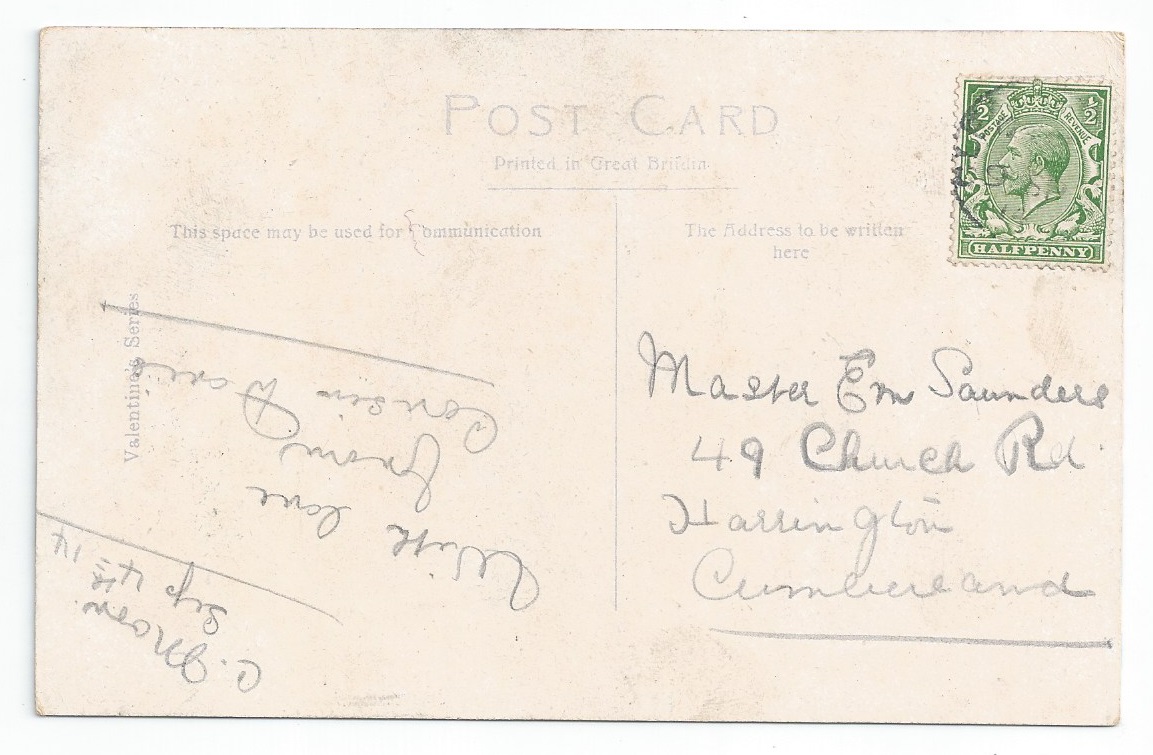 POST CARD
Printed in Great Britain
This space may be used for Communication
The Address to be written
here
Valentine's Series
POSTAGE REVENUE
½ ½
HALFPENNY
C. Moor
Sep 4th 14
With love
from
Cousin
Master Em Saunders
49 Church Rd
Harrington
Cumberland